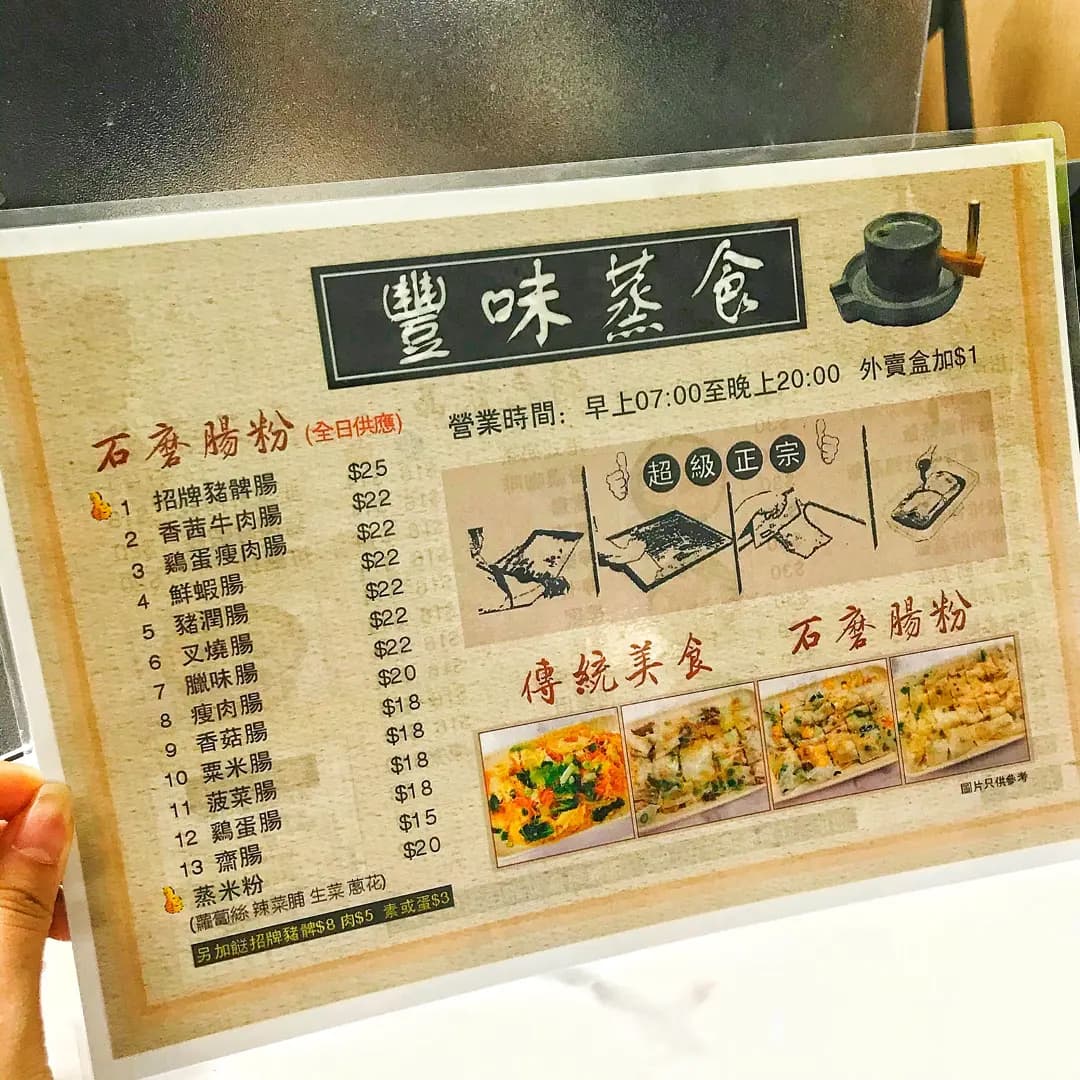 豐味蒸食
營業時間： 早上07:00至晚上20:00 外賣盒加$1
石磨腸粉 (全日供應)
1 招牌豬髀腸 $25
2 香茜牛肉腸 $22
3 鷄蛋瘦肉腸 $22
4 鮮蝦腸 $22
5 豬潤腸 $22
6 叉燒腸 $22
7 臘味腸 $22
8 瘦肉腸 $20
9 香菇腸 $18
10 粟米腸 $18
11 菠菜腸 $18
12 鷄蛋腸 $18
13 齋腸 $15
蒸米粉 $20
(蘿蔔絲 辣菜脯 生菜 蔥花)
另加餸招牌豬髀$8 肉$5 素或蛋$3
超級正宗
傳統美食 石磨腸粉
圖片只供參考